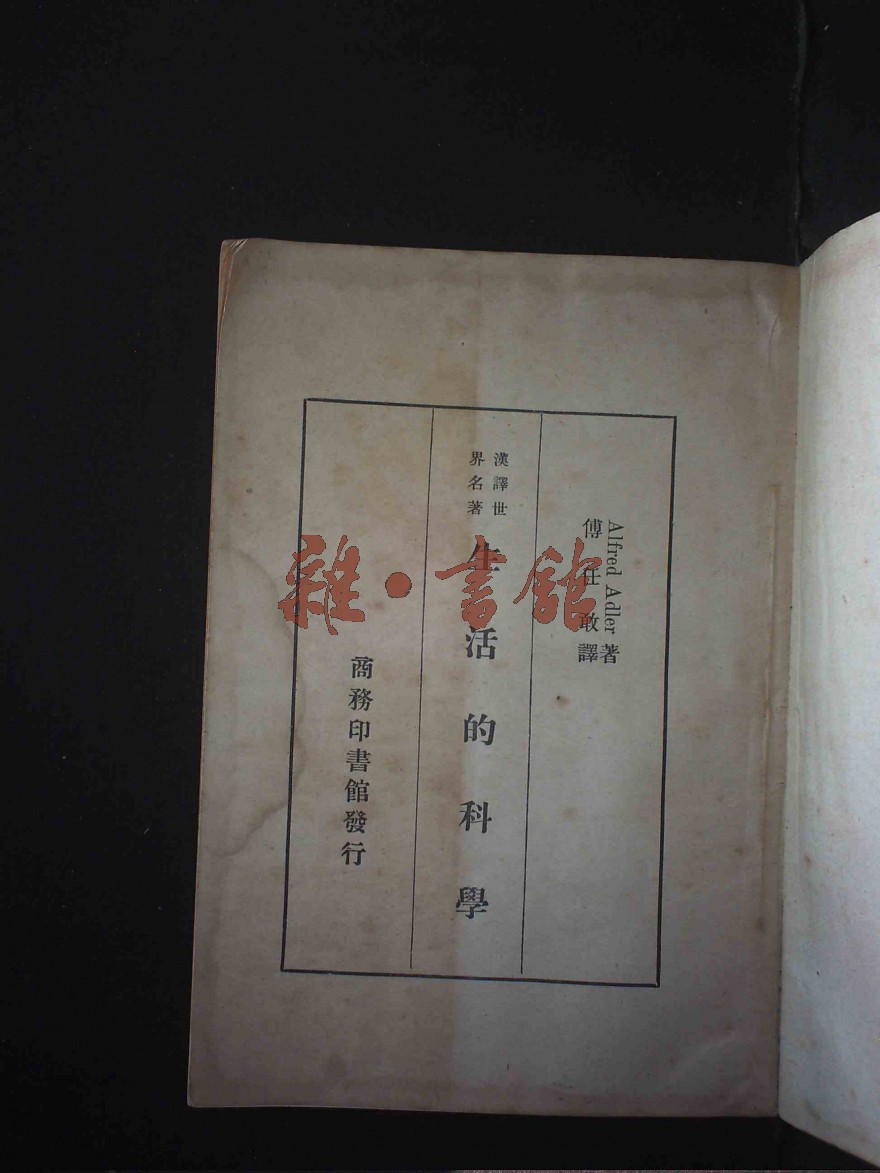 Alfred Adler 著
傅任敢譯
漢譯世
界名著
生活的科學
商務印書館發行
雜·書館